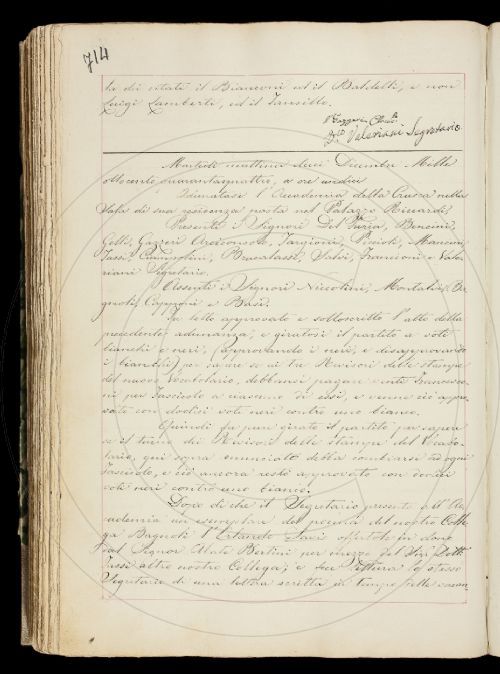 714
ta di citati il Bianconi ed il Baldelli, e non
Luigi Lamberti, ed il Tansillo.
Valeriani Segretario
Martedì mattina dieci Dicembre Mille
ottocento quarantaquattro, a ore undici
Adunatasi l'Accademia della Crusca nella
Sala di sua residenza posta nel Palazzo Riccardi,
Presenti i Signori Del Furia, Bencini,
Gelli, Gazzeri Arciconsolo, Targioni, Puccioli, Mancini
Tassi, Brucalassi, Salvi, Francioni e Vale-
riani Segretario.
Assenti i Signori Niccolini, Montalvi, Ba-
gnoli, Capponi e Basi.
Fu letto approvato e sottoscritto l'atto della
precedente adunanza; e giratosi il partito a voti
bianchi e neri, (approvando i neri, e disapprovando
i bianchi) per sapere se ai tre Revisori delle stampe
del nuovo Vocabolario, debbansi pagare venti Francesco-
ni per Fascicolo a ciascuno di essi, e venne ciò appro-
vato con dodici voti neri contro uno bianco.
Quindi fu pure girato il partito per sapere
se il turno dei Revisori delle stampe del Vocabo-
lario, qui sopra enunciato debba cambiarsi ad ogni
Fascicolo, e ciò ancora restò approvato con dodici
voti neri contro uno bianco.
Dopo di che il Segretario presentò all'Ac-
cademia un esemplare del poema del nostro Colle-
ga Bagnoli l'Orlando Savio offertole in dono
dal Signor Abate Bertini per mezzo del Sig. Dott.
Tassi altro nostro Collega; e fece lettura lo stesso
Segretario di una lettera scritta in tempo delle vacan-